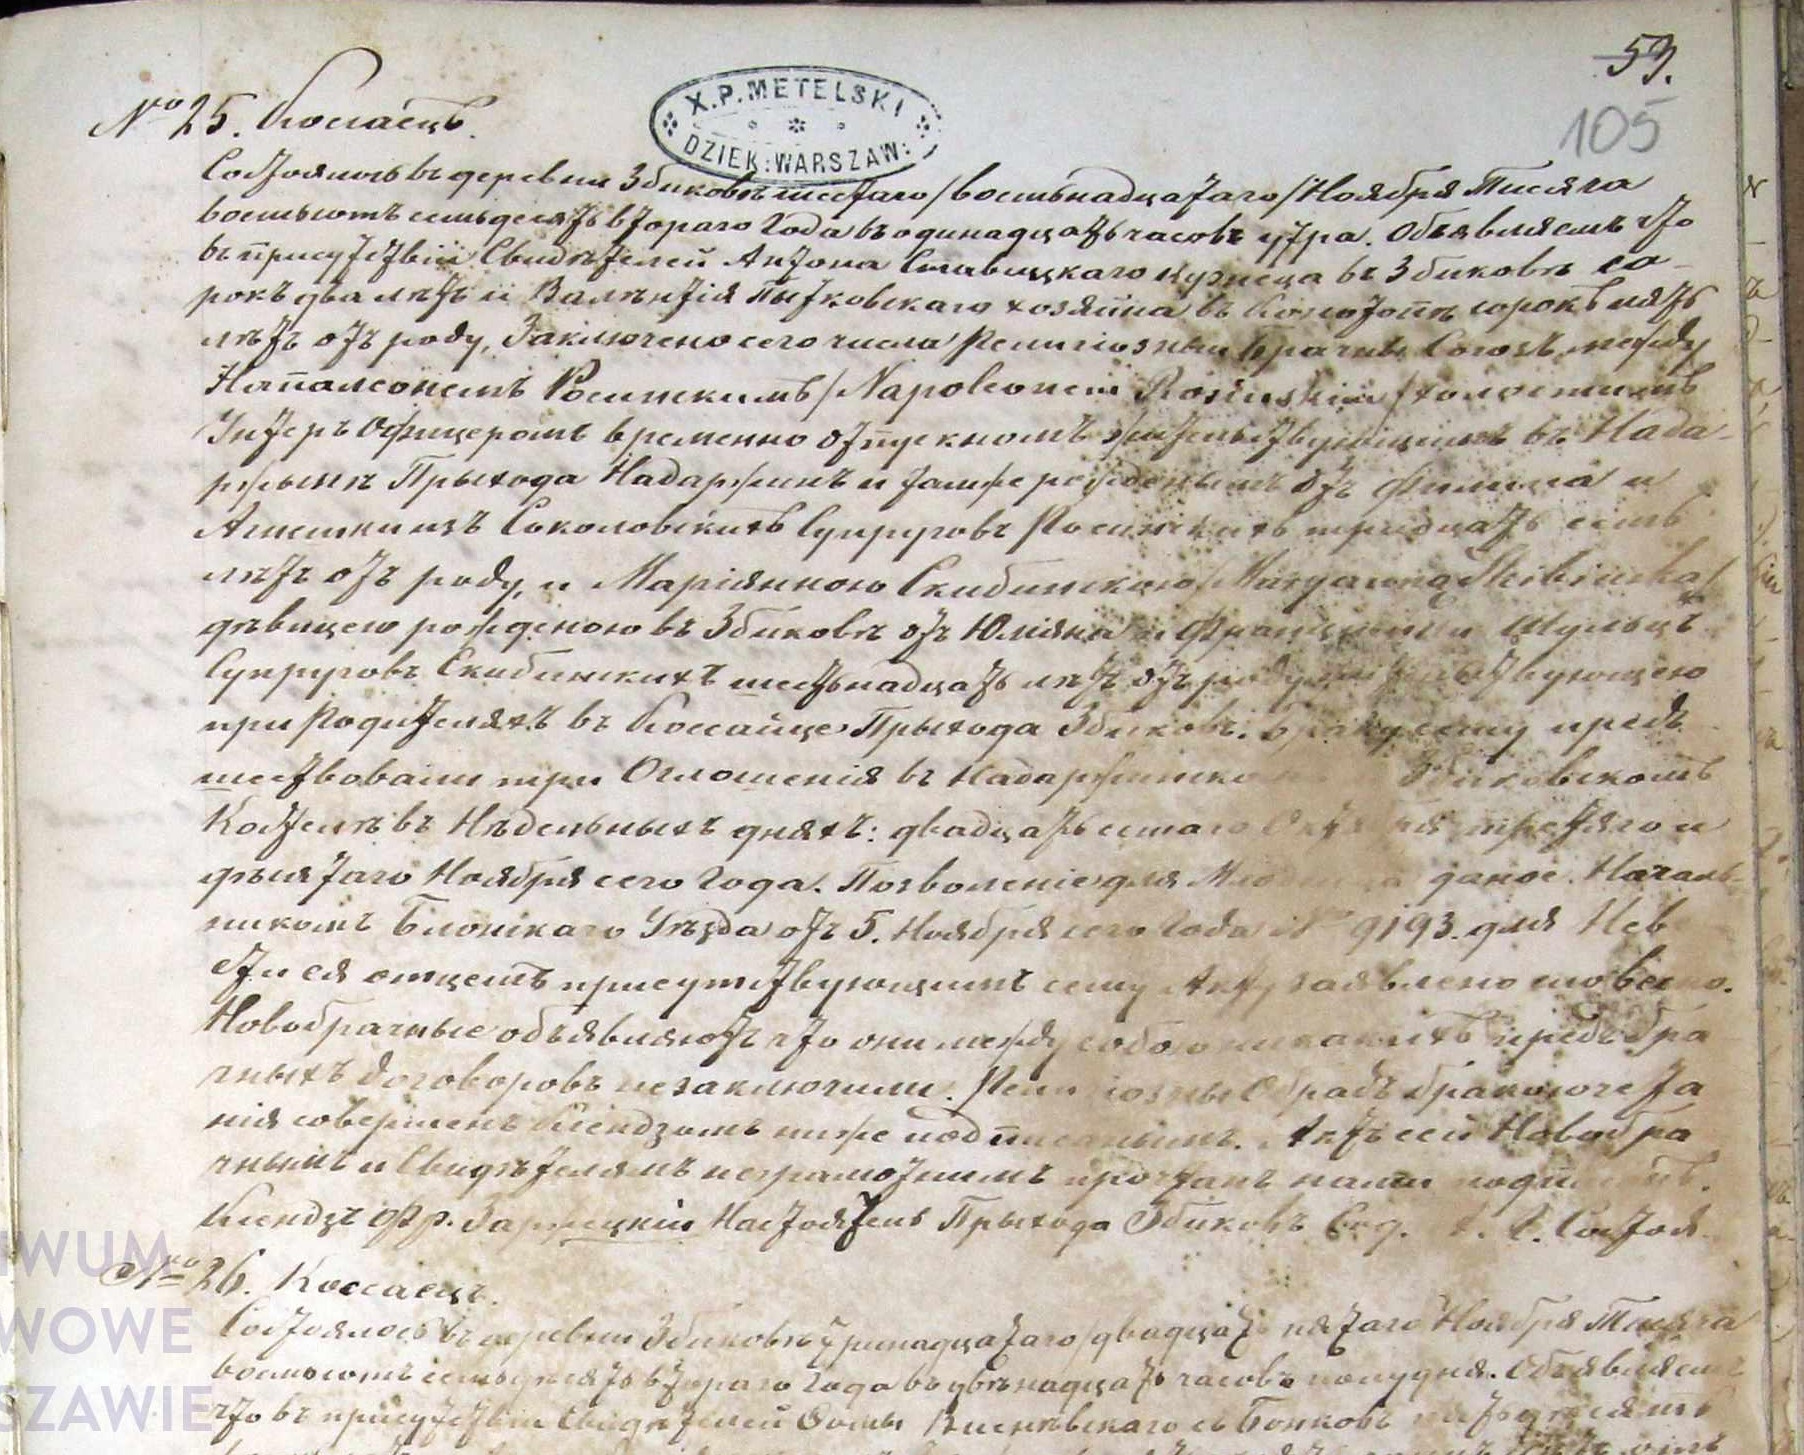 53.
105
X.P.METELSKI
DZIEK:WARSZAW:
№ 25. Коссаецъ.
Состоялось въ деревни Збиковѣ шестаго /восьмнадцатаго/ Ноября Тысяча
восьмьсотъ семьдесятъ втораго Года въ одинадцать часовъ утра. Объявляемъ что
въ присутствіи Свидѣтелей Антона Ставицкаго кузнеца въ Збиковѣ со-
рокъ два лѣтъ и Валѣнтія Пытковскаго хозяина въ сорокъ пять
лѣтъ отъ роду, Заключено сего числа Религіозный Брачны Союзъ между
Наполеономъ Росинскимъ /Napoleonem Rosińskim/ холостымъ
Унтеръ Офицеромъ временно отпускномъ жительствующимъ въ Нада-
ржынѣ Прыхода Надаржинъ и тамже рожденнымъ отъ Филипа и
Агнешки изъ Соколовскихъ Супруговъ Росинскихъ тридцать семь
лѣтъ отъ роду, и Маріянною Скибинскою /Maryanną Skibińską/
дѣвицею рожденою въ Збиковѣ отъ Юліяна и Францишки Шульцъ
Супруговъ Скибинскихъ шестьнадцать лѣтъ отъ роду жительствующею
при Родителяхъ въ Коссайце Прыхода Збиковъ. Браку сему предъ
шествовали три Оглошенія въ Надаржинско Збиковскомъ
Костелѣ въ Недѣльныхъ дняхъ: двадцать семаго Октября третяго и
десятаго Ноября сего Года. Позволеніе для даное Началь-
никомъ Блонскаго Уѣзда отъ 5. Ноября сего Года № 9193. для Нев
сти ея отцемъ присутствующимъ сему Акту заявлено словесно.
Новобрачные объявляютъ что они между собою никакихъ предъ бра
чныхъ договоровъ незаключили. Религіозны Обрадъ бракосочета
нія совершенъ Ксендзомъ ниже подписанымъ. Актъ сей Новобра
чнымъ и Свидѣтелямъ неграмотнымъ прочтанъ нами подписанъ.
Ксендзъ Фр. Заржецкій Настоятель Прыхода Збиковъ Сод. А. Г. Состоя.
№ 26. Коссаецъ.
Состоялось въ деревни Збиковѣ тринадцатаго /двадцать пятаго Ноября Тысяча
восьмьсотъ семьдесятъ втораго Года въ двѣнадцать часовъ полудня. Объявляемъ
что въ присутствіи Свидѣтелей Фомы съ Бонковъ
IWUM
WOWE
SZAWIE